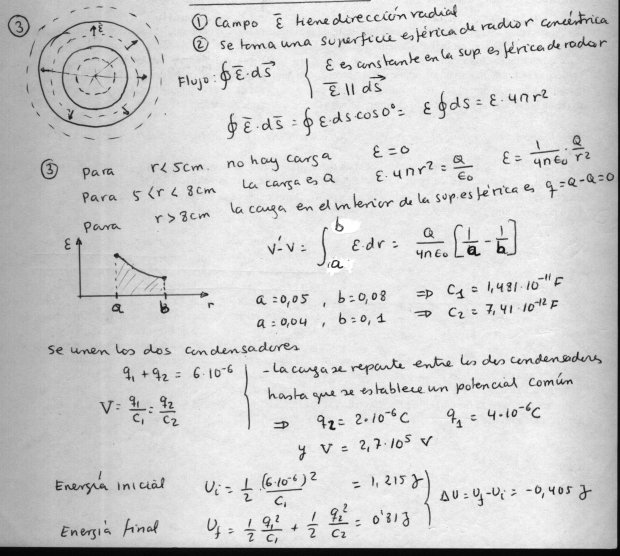 ③
① Campo ε̄ tiene dirección radial
② se toma una superficie esférica de radio r concéntrica
Flujo: ∮ε̄·ds⃗
ε es constante en la sup esférica de radio r
ε̄ || ds⃗
∮ε̄·ds̄ = ∮ε·ds cos0° = ε∮ds = ε·4πr²
③ Para r<5cm. no hay carga ε=0
Para 5<r<8cm la carga es Q ε·4πr² = Q/ε₀ ε = 1/(4πε₀)·Q/r²
Para r>8cm la carga en el interior de la sup. esférica es q=Q-Q=0
ε
a b r
V'-V = ∫ₐᵇ ε·dr = Q/(4πε₀) [1/a - 1/b]
a=0,05 , b=0,08 ⇒ C₁ = 1,481·10⁻¹¹ F
a=0,04 , b=0,1 ⇒ C₂ = 7,41·10⁻¹² F
se unen los dos condensadores
q₁+q₂ = 6·10⁻⁶
V = q₁/C₁ = q₂/C₂
- la carga se reparte entre los dos condensadores
hasta que se establece un potencial común
⇒ q₂ = 2·10⁻⁶ C q₁ = 4·10⁻⁶ C
y V = 2,7·10⁵ V
Energía inicial Uᵢ = 1/2 (6·10⁻⁶)²/C₁ = 1,215 J
ΔU = U_f - Uᵢ = -0,405 J
Energía final U_f = 1/2 q₁²/C₁ + 1/2 q₂²/C₂ = 0'81 J